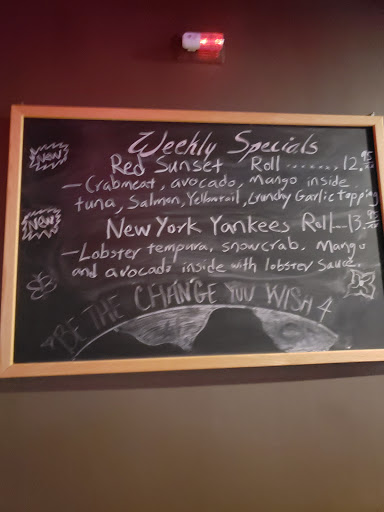 Weekly Specials
New Red Sunset Roll ....... 12.95
- Crabmeat, avocado, Mango inside
tuna, Salmon, Yellowtail, Crunchy Garlic topping
New New York Yankees Roll - 13.95
- Lobster tempura, snowcrab. Mango
and avocado inside with lobster Sauce.
BE THE CHANGE YOU WISH 4